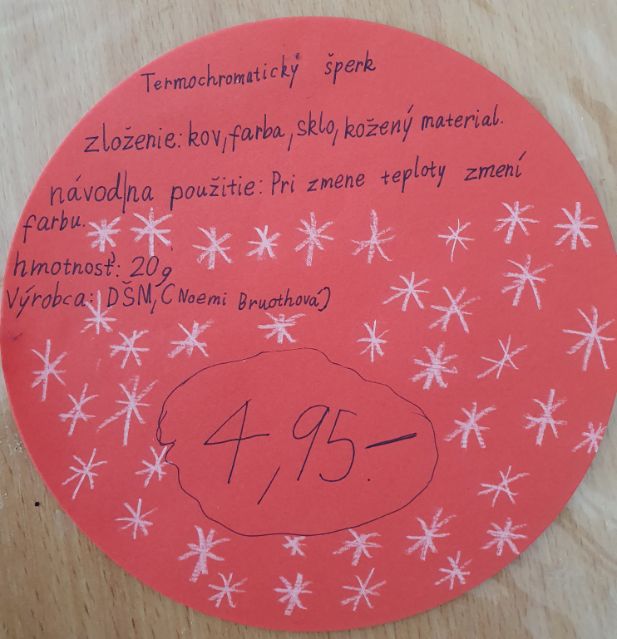 Termochromatický šperk
zloženie: kov, farba, sklo, kožený material.
návod na použitie: Pri zmene teploty zmení
farbu.
hmotnosť: 20g
Výrobca: DŠM, (Noemi Bruothová)
4,95.-